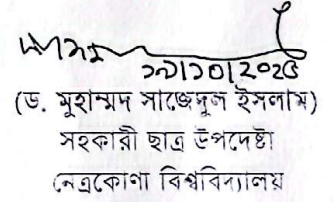 ১৯/১০/2025
(ড. মুহাম্মদ সাজেদুল ইসলাম)
সহকারী ছাত্র উপদেষ্টা
নেত্রকোণা বিশ্ববিদ্যালয়